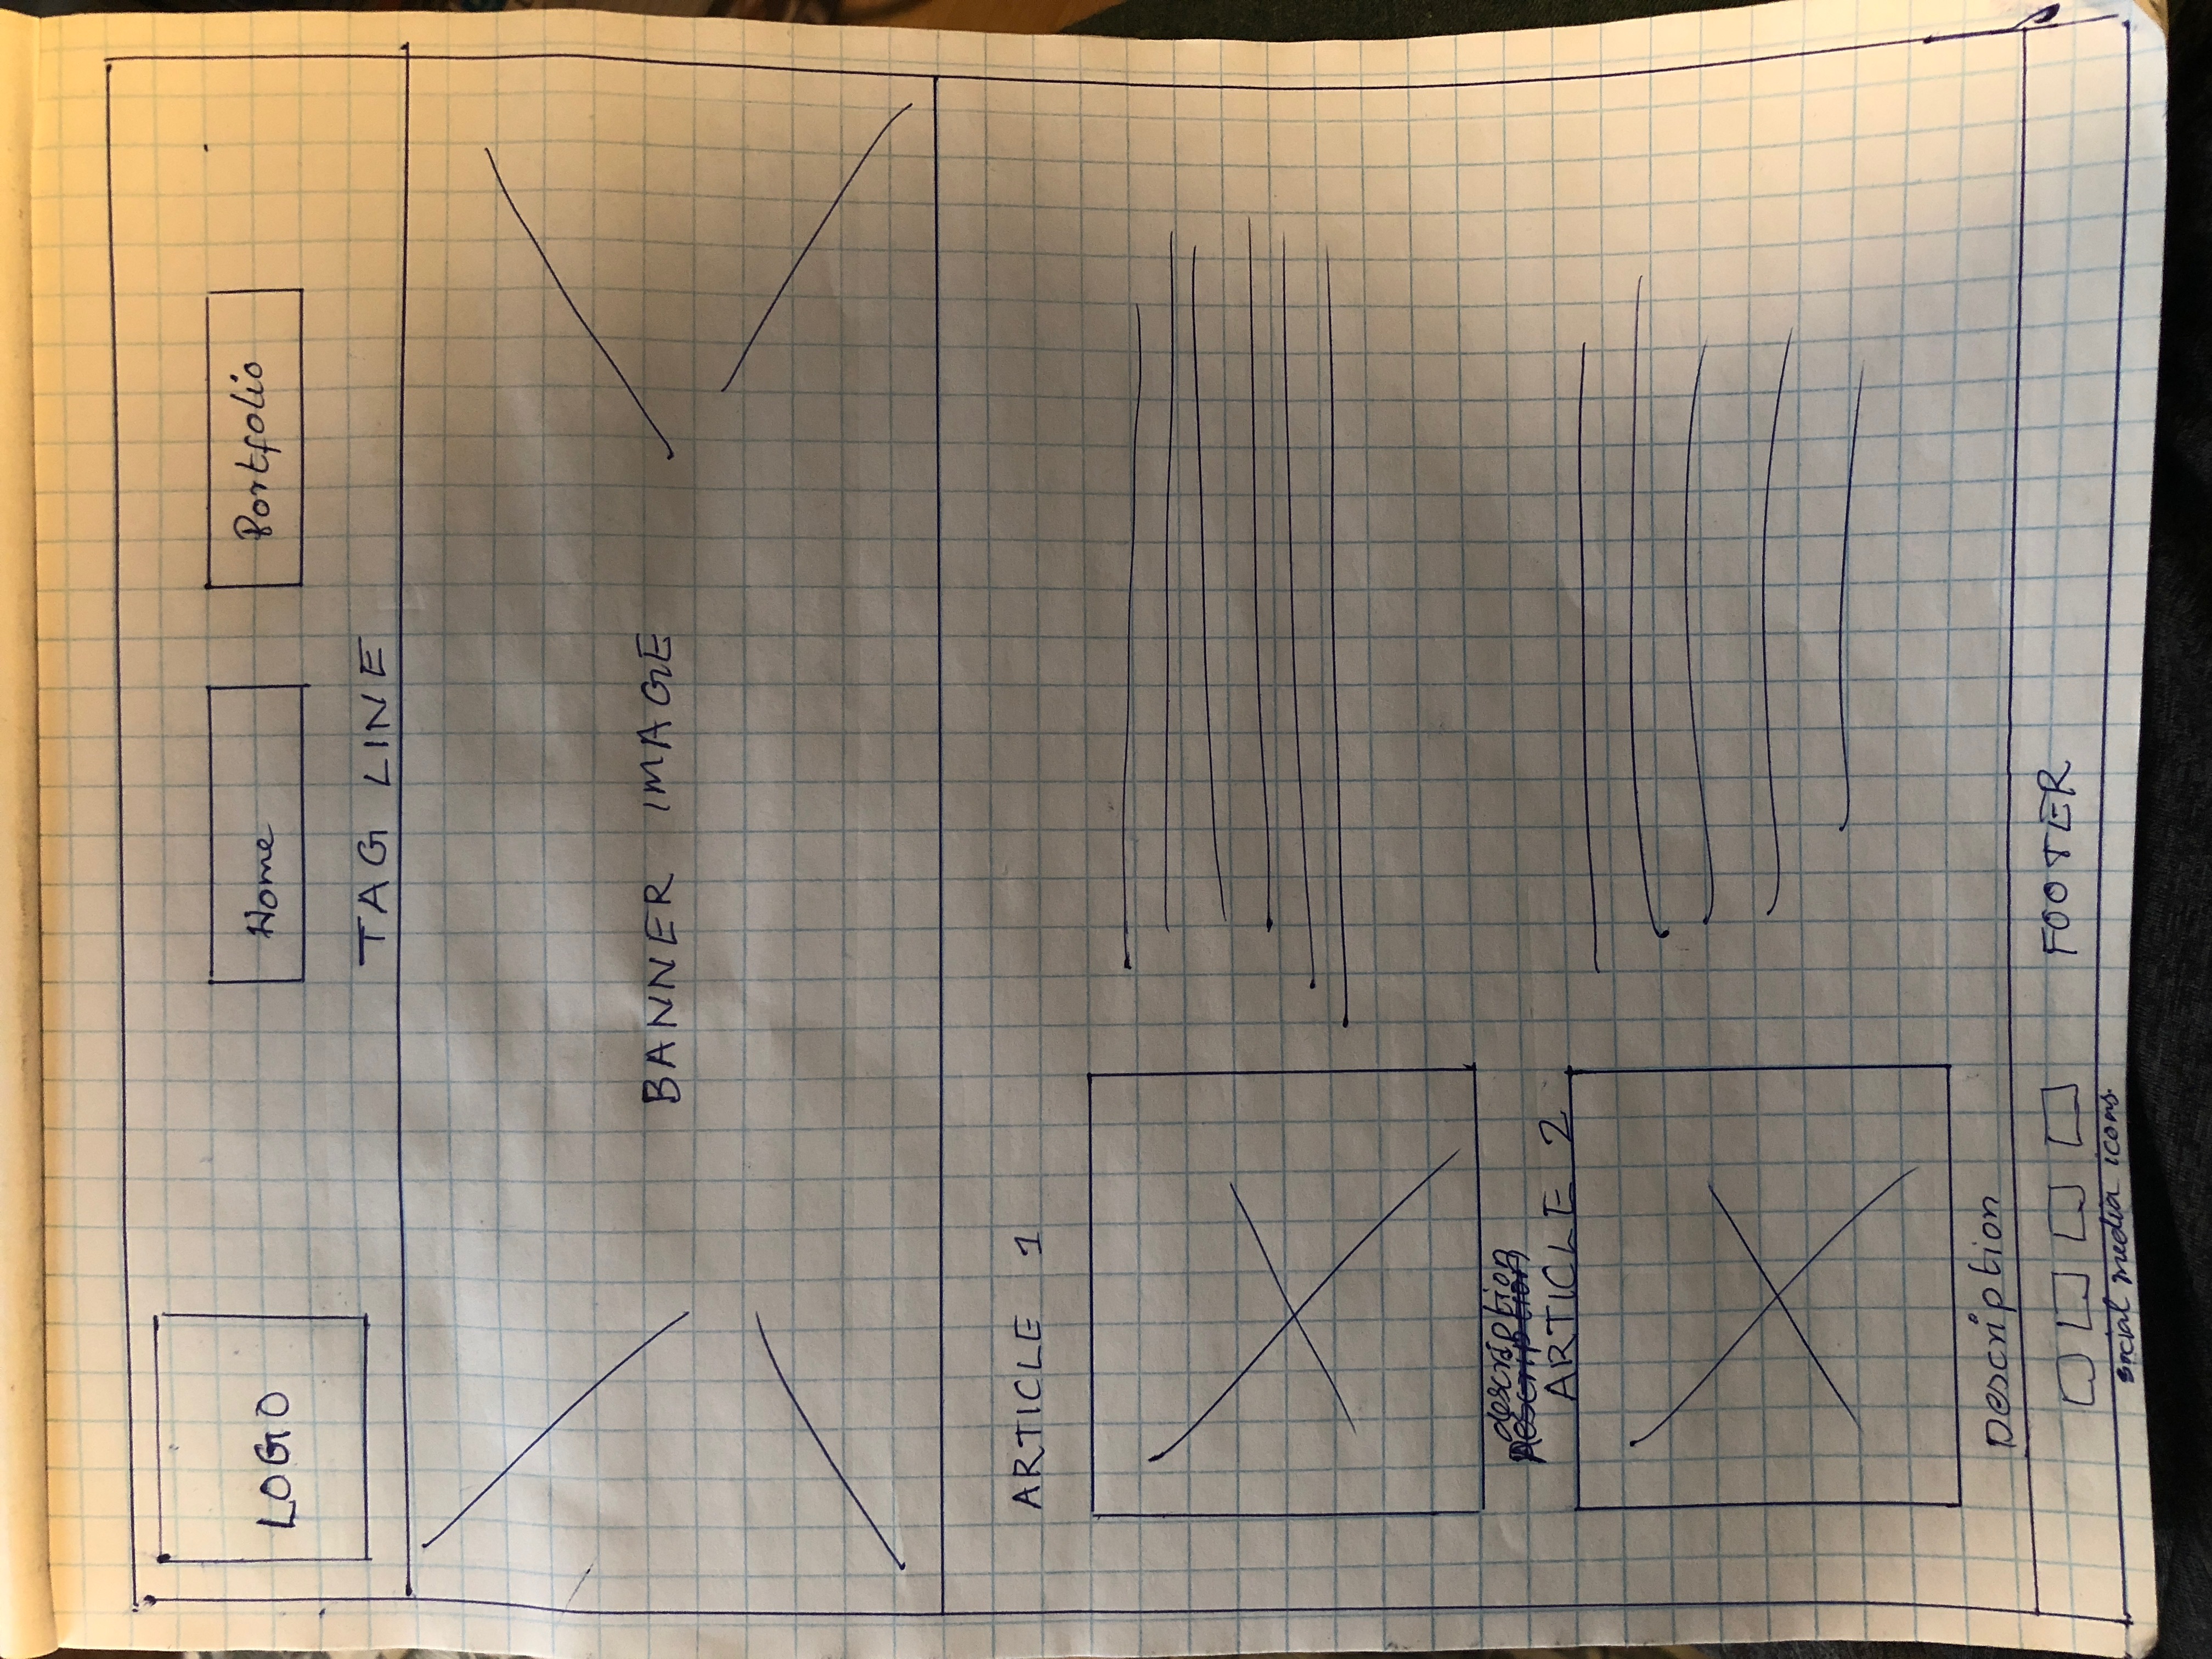 LOGO
Home
Portfolio
TAG LINE
BANNER IMAGE
ARTICLE 1
description
Description
ARTICLE 2
Description
FOOTER
social media icons